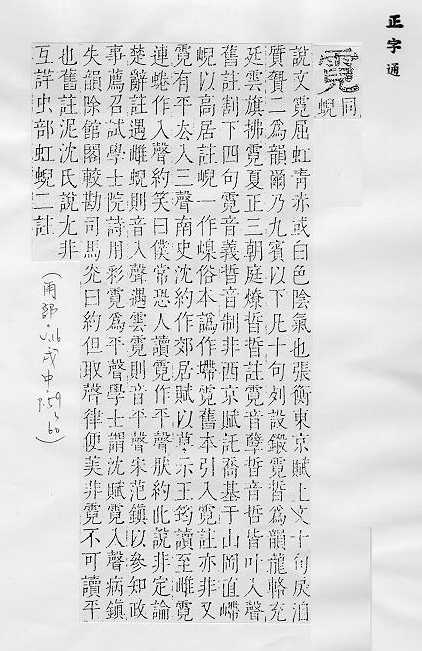 正字通
霓
同
蜺
說文霓屈虹靑赤或白色陰氣也張衡東京賦上文十句戾泊
質贊二爲韻爾乃九賓以下凡十句列設鍛霓晢爲韻龍輅充
廷雲旗拂霓夏正三朝庭燎晢晢註霓音孽晢音哲皆叶入聲
舊註割下四句霓音義晢音制非西京賦託喬基于山岡直嵽
蜺以高居註蜺一作嵲俗本譌作墆霓舊本引入霓註亦非又
霓有平去入三聲南史沈約作郊居賦以草示王筠讀至雌霓
連蜷作入聲約笑曰僕常恐人讀霓作平聲肰約此說非定論
楚辭註遇雌蜺則音入聲遇雲霓則音平聲宋范鎭以參知政
事薦召試學士院詩用彩霓爲平聲學士謂沈賦霓入聲病鎭
失韻除館閣較勘司馬光曰約但取聲律便美非霓不可讀平
也舊註泥沈氏說尢非
互詳虫部虹蜺二註
(雨部·v.16 戌中·p.59~60)